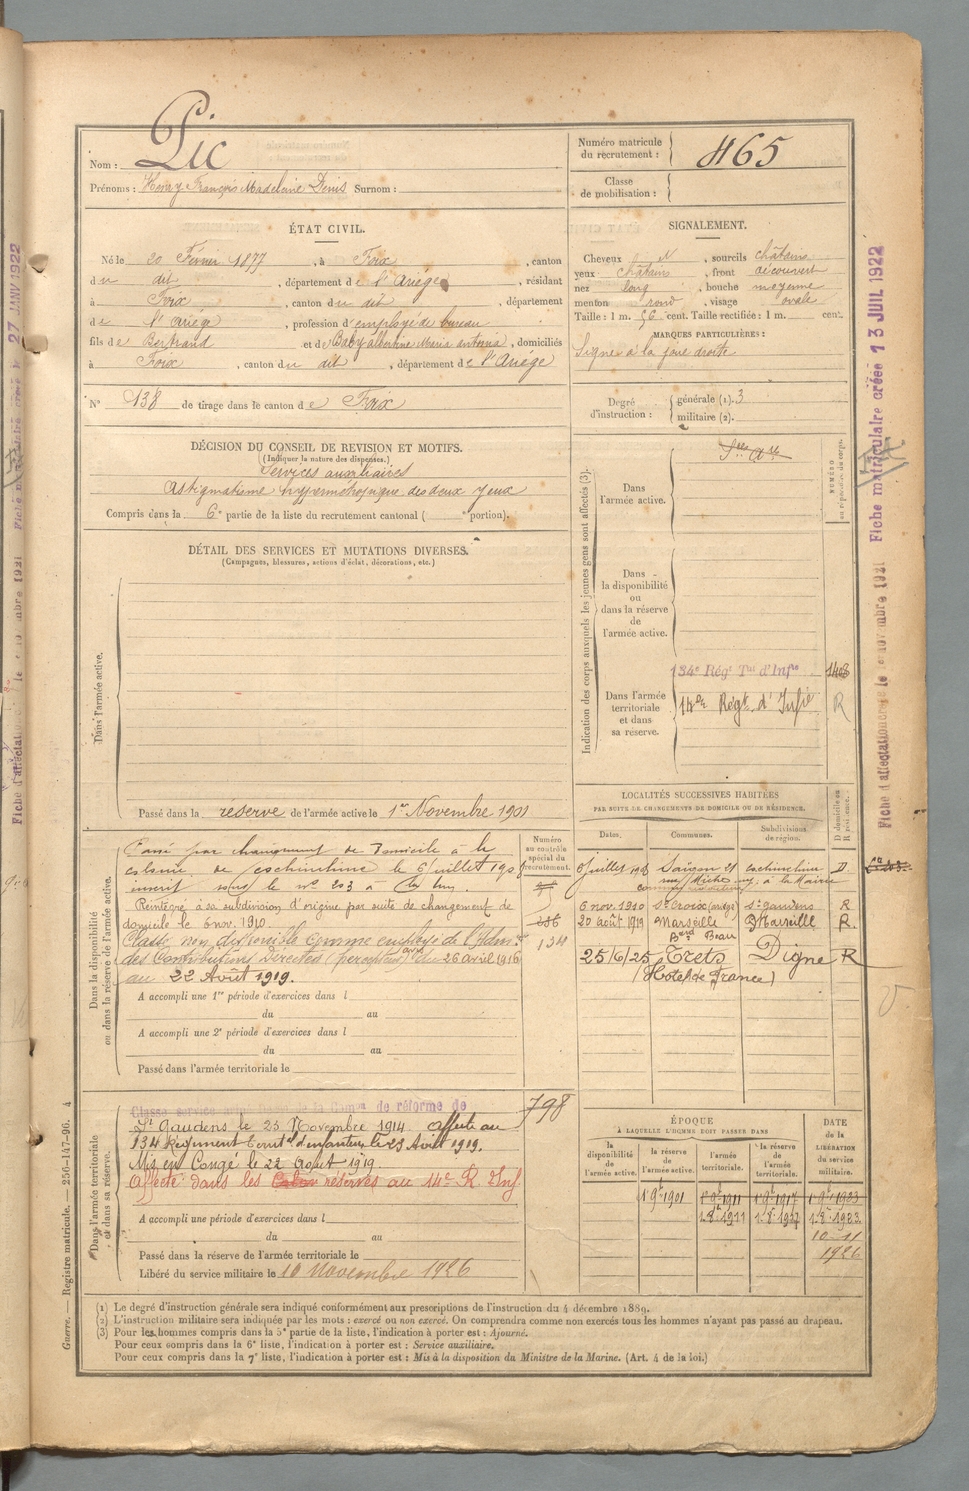 Nom : Pic
Prénoms : Henry François Madeleine Denis Surnom :
Numéro matricule du recrutement : 465
Classe de mobilisation :
ÉTAT CIVIL.
Né le 20 Février 1877, à Foix, canton
du dit, département de l'Ariége, résidant
à Foix, canton du dit, département
de l'Ariége, profession d'employé de bureau
fils de Bertrand et de Baby albertine Maria antonia, domiciliés
à Foix, canton du dit, département de l'Ariége
N° 138 de tirage dans le canton de Foix
SIGNALEMENT.
Cheveux N, sourcils châtains
yeux châtains, front découvert
nez long, bouche moyenne
menton rond, visage ovale
Taille : 1 m. 56 cent. Taille rectifiée : 1 m. cent.
MARQUES PARTICULIÈRES :
Signe à la joue droite
Degré d'instruction : générale (1). 3
militaire (2).
DÉCISION DU CONSEIL DE REVISION ET MOTIFS.
(Indiquer la nature des dispenses.)
Services auxiliaires
Astigmatisme hypermétropique des deux yeux
Compris dans la 6e partie de la liste du recrutement cantonal ( portion).
DÉTAIL DES SERVICES ET MUTATIONS DIVERSES.
(Campagnes, blessures, actions d'éclat, décorations, etc.)
Dans l'armée active.
Passé dans la réserve de l'armée active le 1er Novembre 1901
Indication des corps auxquels les jeunes gens sont affectés (3).
NUMÉRO au répertoire du corps.
Dans l'armée active.
Dans la disponibilité ou dans la réserve de l'armée active.
Dans l'armée territoriale et dans sa réserve.
134e Régt Tal d'Infie 1408
14e Régt d'Infie R
LOCALITÉS SUCCESSIVES HABITÉES
PAR SUITE DE CHANGEMENTS DE DOMICILE OU DE RÉSIDENCE.
Dates. Communes. Subdivisions de région.
Saïgon 21 D
6 nov. 1910 St Croix St Gaudens R
20 août 1919 Marseille Marseille R.
Bd Beau
25/6/25 Trets Digne R
(Hotel de France)
Dans la disponibilité ou dans la réserve de l'armée active.
Numéro au contrôle spécial du recrutement.
Passé par changement de Domicile à le
inscrit sous le no 203 à
Réintégré à sa subdivision d'origine par suite de changement de
domicile le 6 nov. 1910.
Classé non disponible comme employé de l'Adm.
des Contributions Directes (percepteur) du 26 avril 1916
au 22 Août 1919.
134
A accompli une 1re période d'exercices dans l
du au
A accompli une 2e période d'exercices dans l
du au
Passé dans l'armée territoriale le
Dans l'armée territoriale et dans sa réserve.
798
de la Comon de réforme de
St Gaudens le 23 Novembre 1914 Affecté au
134 Régiment Territal d'infanterie le 23 Août 1919.
Mis en Congé le 22 Août 1919.
Affecté dans les réserves au 14e R. Inf
A accompli une période d'exercices dans l
du au
Passé dans la réserve de l'armée territoriale le
Libéré du service militaire le 10 Novembre 1926
ÉPOQUE
À LAQUELLE L'HOMME DOIT PASSER DANS
la disponibilité de l'armée active. la réserve de l'armée active. l'armée territoriale. la réserve de l'armée territoriale.
DATE de la LIBÉRATION du service militaire.
1 9bre 1901 1 9bre 1911 1 9bre 1917 1 9bre 1923
10-11
1926
(1) Le degré d'instruction générale sera indiqué conformément aux prescriptions de l'instruction du 4 décembre 1889.
(2) L'instruction militaire sera indiquée par les mots : exercé ou non exercé. On comprendra comme non exercés tous les hommes n'ayant pas passé au drapeau.
(3) Pour les hommes compris dans la 5e partie de la liste, l'indication à porter est : Ajourné.
Pour ceux compris dans la 6e liste, l'indication à porter est : Service auxiliaire.
Pour ceux compris dans la 7e liste, l'indication à porter est : Mis à la disposition du Ministre de la Marine. (Art. 4 de la loi.)
Guerre. — Registre matricule. — 256-147-96. 4
Fiche matriculaire créée 13 JUIL 1922
27 JANV 1922